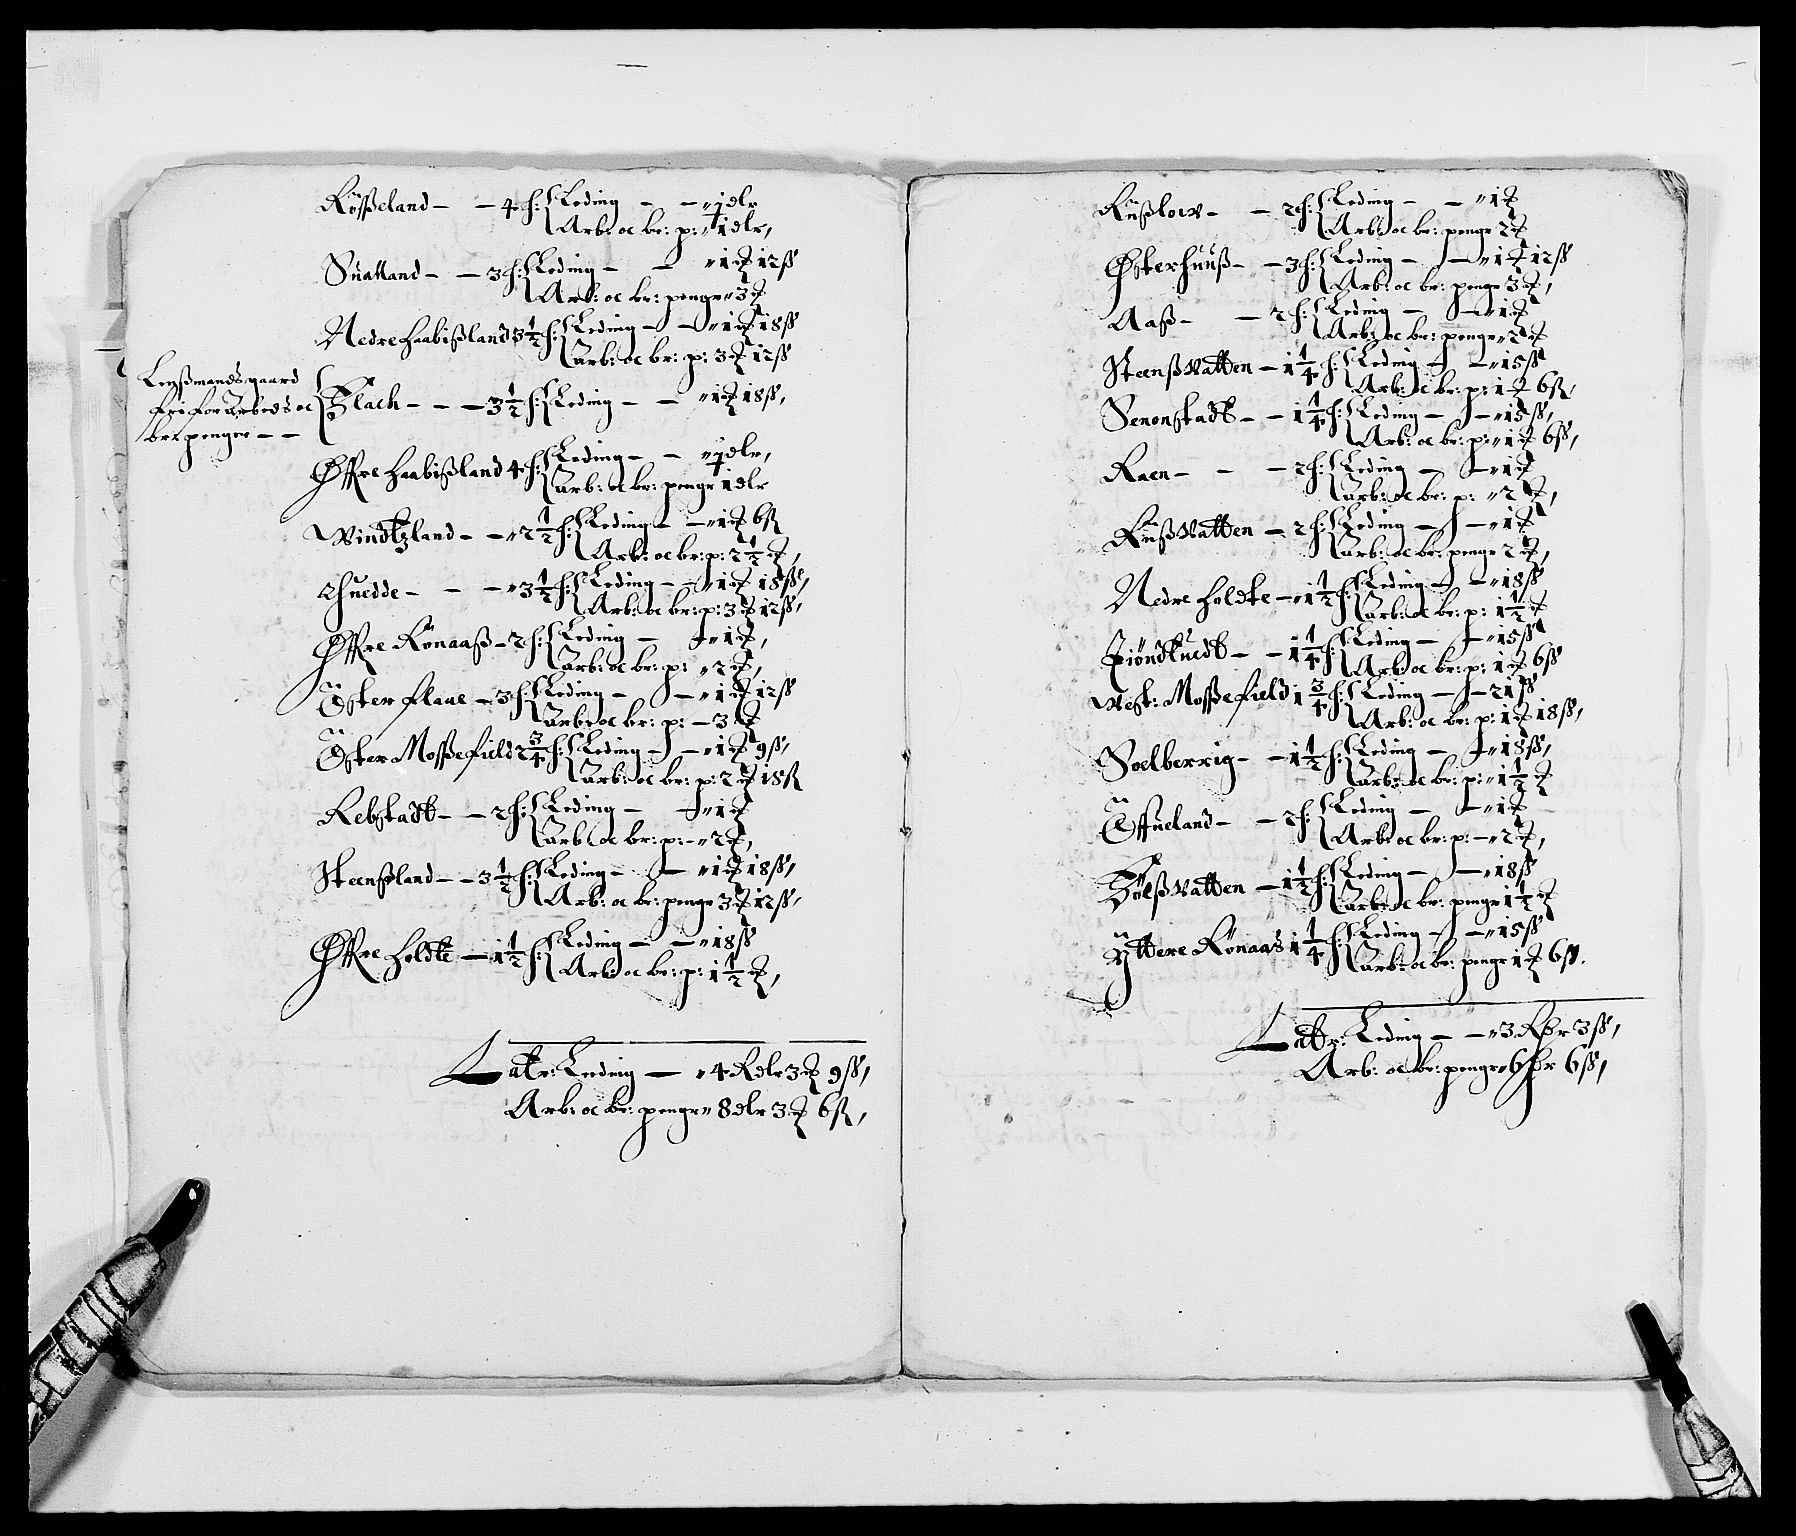 Røsseland — — 4 h: Leding — — „ 1 dlr
Arb: oc br: p: „ 1 dlr,
Suatland — — 3 h: Leding — — „ 1 ẟ 12 ß
Arb: oc br: penge „ 3 ẟ
Nedre Haabißland 3½ h: Leding — — „ 1 ẟ 18 ß
arb: oc br: p: 3 ẟ 12 ß
Lenßmands gaard
fri for Arbeds oc
br: penge — —
Flach — — — 3½ h: Leding — — „ 1 ẟ 18 ß,
Øffre Haabißland 4 h: Leding — — „ 1 dlr,
arb: oc br: penge 1 dlr
Windtzland — — „ 2½ h: Leding — — „ 1 ẟ 6 ß
Arb: oc br: p: 2½ ẟ,
Thuedde — — — „ 3½ h: Leding — — „ 1 ẟ 18 ß,
Arb: oc br: p: 3 ẟ 12 ß,
Øffre Rönaaß — 2 h: Leding — — „ 1 ẟ,
arb: oc br: p: „ 2 ẟ,
Öster flaae — 3 h: Leding — — „ 1 ẟ 12 ß
arb: oc br: p: — 3 ẟ
Öster Mossefield 2¾ h: Leding — — „ 1 ẟ 9 ß,
arb: oc br: p: 2 ẟ 18 ß
Rebstadt — — 2 h: Leding — — „ 1 ẟ
arb: oc br: p: — „ 2 ẟ,
Steenßland — — 3½ h: Leding — — „ 1 ẟ 18 ß,
Arb: oc br: penge 3 ẟ 12 ß,
Øffre Holdte — 1½ h: Leding — — „ 18 ß
Arb: oc br: p: 1½ ẟ,
Latr: Leding — „ 4 Rdlr 3 ẟ 9 ß,
Arb: oc br: penge „ 8 dlr 3 ẟ 6 ß,
Rußlow — — 2 h: Leding — — „ 1 ẟ
Arb: oc br: penge 2 ẟ
Østerhuuß — — 3 h: Leding — — „ 1 ẟ 12 ß
Arb: oc br: penge 3 ẟ,
Aaß — — 2 h: Leding — — „ 1 ẟ
Arb: oc br: penge „ 2 ẟ
Steenßvatten — 1¼ h: Leding — — „ 15 ß
Arb: oc br: p: 1 ẟ 6 ß,
Senonstadt — — 1¼ h: Leding — — „ 15 ß,
Arb: oc br: p: „ 1 ẟ 6 ß,
Raen — — — 2 h: Leding — — „ 1 ẟ
arb: oc br: p: „ 2 ẟ,
Rußvatten — 2 h: Leding — — „ 1 ẟ
arb: oc br: penge 2 ẟ,
Nedre Holdte — „ 1½ h: Leding — — „ 18 ß
arb: oc br: p: 1½ ẟ
Fiöndtuedt — — 1¼ h: Leding — — „ 15 ß
Arb: oc br: p: 1 ẟ 6 ß
Vest: Mossefield 1¾ h: Leding — — 21 ß
Arb: oc br: p: 1 ẟ 18 ß,
Soelberrig — — 1½ h: Leding — — „ 18 ß,
arb: oc br: p: „ 1½ ẟ
Öffueland — — 2 h: Leding — — „ 1 ẟ
Arb: oc br: p: — „ 2 ẟ,
Fölßvatten — 1½ h: Leding — — „ 18 ß
arb: oc br: penge 1½ ẟ
Ÿttere Rönaas 1¼ h: Leding — — „ 15 ß
arb: oc br: penge 1 ẟ 6 ß.
Latr: Leding — — „ 3 Rdr 3 ß,
Arb: oc br: penge „ 6 dr 6 ß,